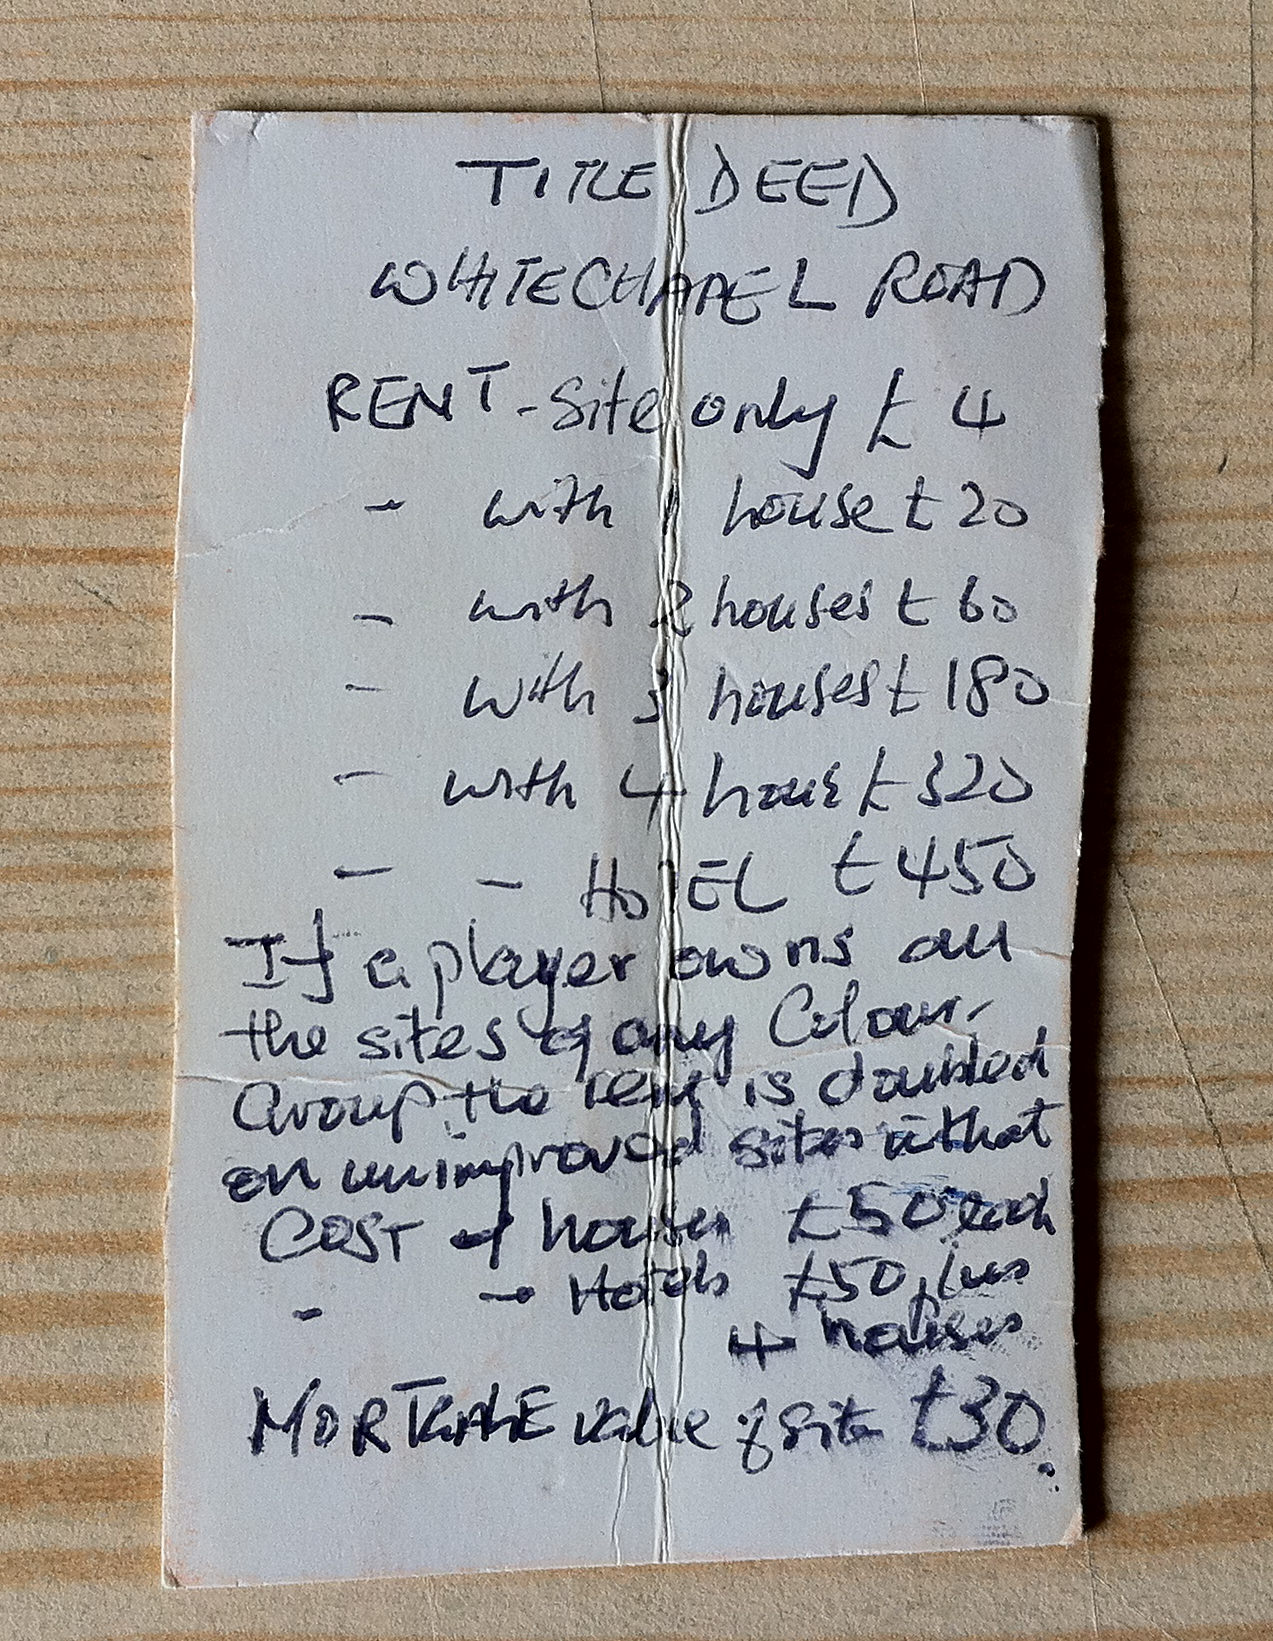 TITLE DEED
WHITECHAPEL ROAD
RENT - Site only £ 4
- with 1 house £ 20
- with 2 houses £ 60
- with 3 houses £ 180
- with 4 hous £ 320
- - HOTEL £ 450
If a player owns all
the sites of any Colour-
Group the rent is doubled
on unimproved sites in that
COST of houses £50 each
- - Hotels £50 plus
4 houses
MORTGAGE value of site £30.